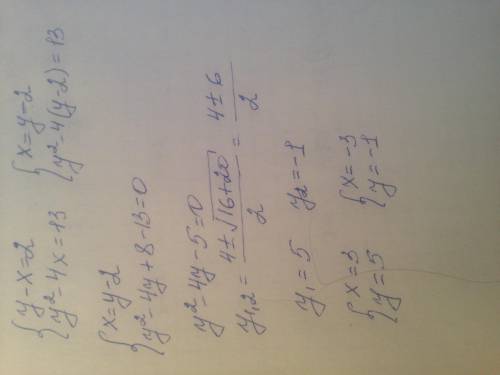 { y-x=2 { x=y-2
{ y²-4x=13 { y²-4(y-2)=13
{ x=y-2
{ y²-4y+8-13=0
y²-4y-5=0
y₁,₂ = (4±√(16+20))/2 = (4±6)/2
y₁=5 y₂=-1
{ x=3 { x=-3
{ y=5 { y=-1